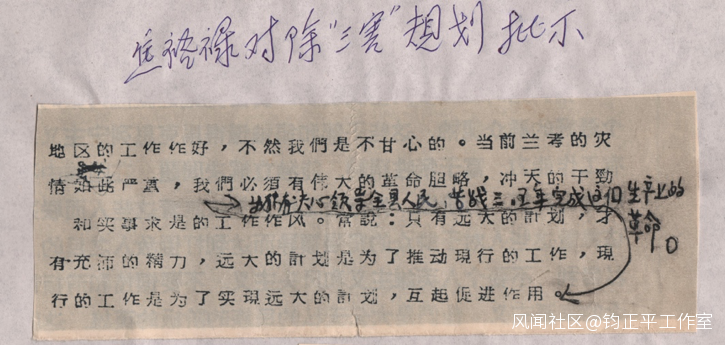 焦裕禄对除“三害”规划批示
地区的工作作好，不然我們是不甘心的。当前兰考的灾
情如此严重，我們必須有伟大的革命胆略，冲天的干勁
有决心領导全县人民，苦战三、五年完成这個生产上的
革命。
和实事求是的工作作风。常說：只有远大的計划，才
有充沛的精力，远大的計划是为了推动現行的工作，現
行的工作是为了实現远大的計划，互起促进作用。
风闻社区@钧正平工作室